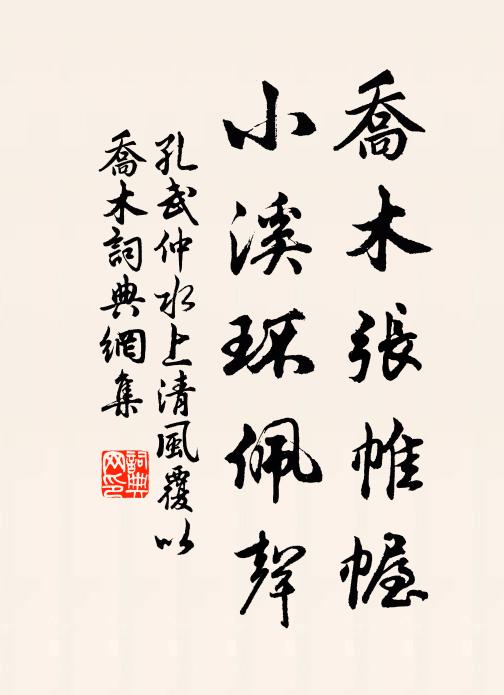 喬木張帷幄
小溪环佩聲
孔武仲水上清風覆以
喬木詞典網集
詞典
网印